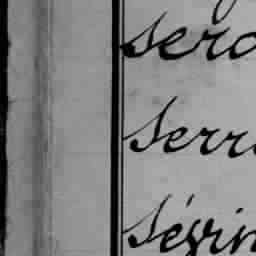 sero
serr
sévin